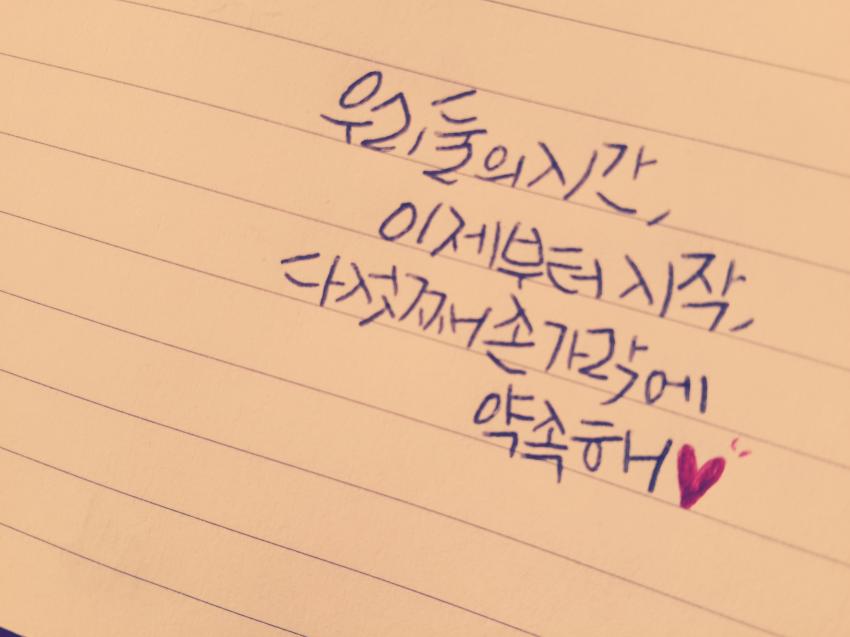 우리들의 시간,
이제부터 시작,
다섯째 손가락에
약속해♥